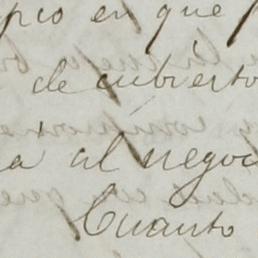 en que
de cubierto
al negoc
Cuanto